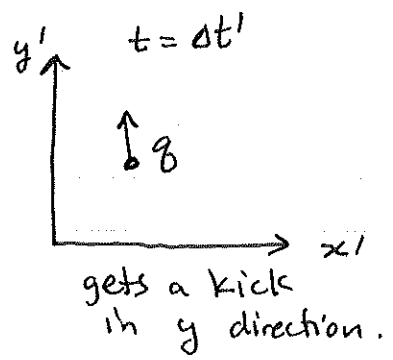 y'
t = Δt'
q
x'
gets a kick
in y direction.